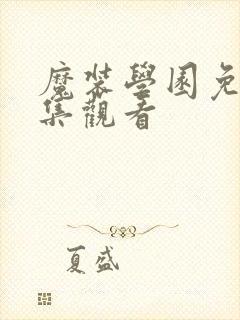 魔裝學園免
集觀看
夏盛